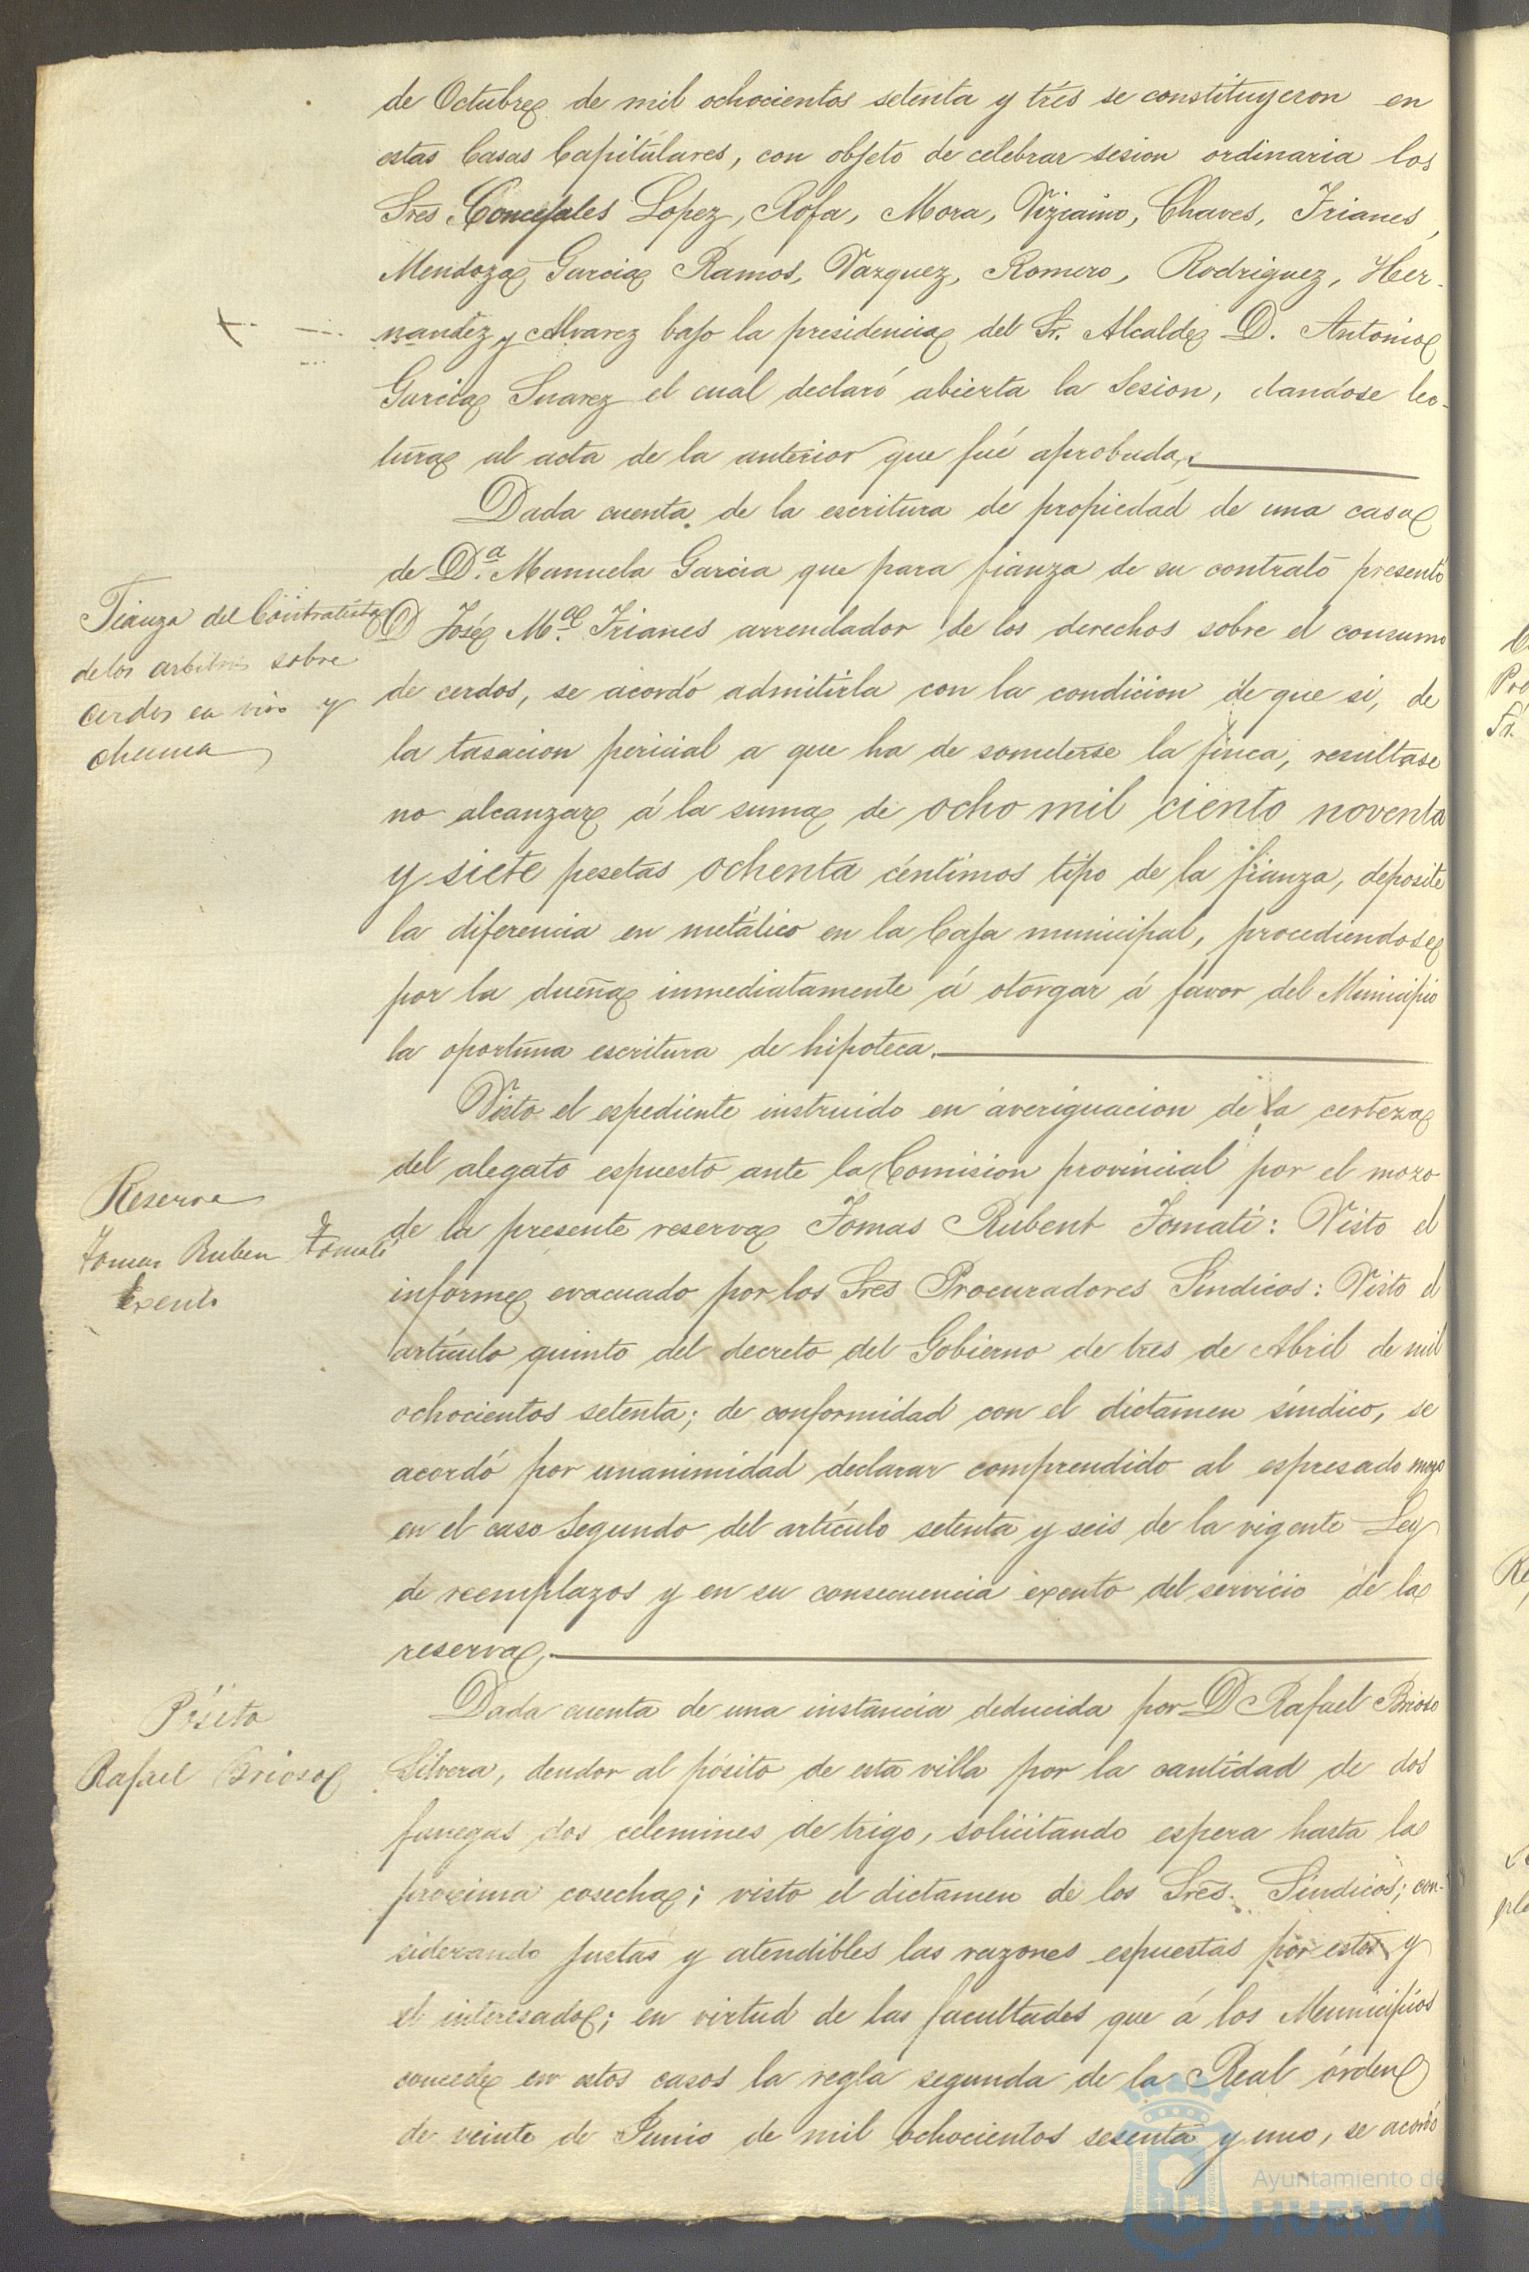 de Octubre de mil ochocientos setenta y tres se constituyeron en
estas Casas Capitulares, con objeto de celebrar sesion ordinaria los
Sres Concejales Lopez, Rofa, Mora, Vizcaino, Chaves, Trianes,
Mendoza Garcia Ramos, Vazquez, Romero, Rodriguez, Her-
nandez y Alvarez bajo la presidencia del Sr. Alcalde D. Antonio
Garcia Suarez el cual declaró abierta la Sesion, dandose lec-
tura al acta de la anterior que fué aprobada.
Fianza del Contratista
de los arbitrios sobre
cerdos en vivo y
chacina
Dada cuenta de la escritura de propiedad de una casa
de D.ª Manuela Garcia que para fianza de su contrato presentó
D José M.ª Trianes arrendador de los derechos sobre el consumo
de cerdos, se acordó admitirla con la condicion de que si, de
la tasacion pericial a que ha de someterse la finca, resultase
no alcanzar á la suma de ocho mil ciento noventa
y siete pesetas ochenta céntimos tipo de la fianza, deposite
la diferencia en metálico en la Caja municipal, procediendose
por la dueña inmediatamente á otorgar á favor del Municipio
la oportuna escritura de hipoteca.
Reserva
Tomas Ruben Tomati
Exento
Visto el espediente instruido en averiguacion de la certeza
del alegato espuesto ante la Comision provincial por el mozo
de la presente reserva Tomas Rubent Tomati: Visto el
informe evacuado por los Sres Procuradores Síndicos: Visto el
artículo quinto del decreto del Gobierno de tres de Abril de mil
ochocientos setenta; de conformidad con el dictamen síndico, se
acordó por unanimidad declarar comprendido al espresado mozo
en el caso segundo del artículo setenta y seis de la vigente Ley
de reemplazos y en su consecuencia exento del servicio de la
reserva.
Pósito
Rafael Brioso
Dada cuenta de una instancia deducida por D Rafael Brioso
Silvera, deudor al pósito de esta villa por la cantidad de dos
fanegas dos celemines de trigo, solicitando espera hasta la
proxima cosecha; visto el dictamen de los Sres. Síndicos; con-
siderando justas y atendibles las razones espuestas por estos y
el interesado; en virtud de las facultades que á los Municipios
concede en estos casos la regla segunda de la Real órden
de veinte de Junio de mil ochocientos sesenta y uno, se acordó
Ayuntamiento de
HUELVA